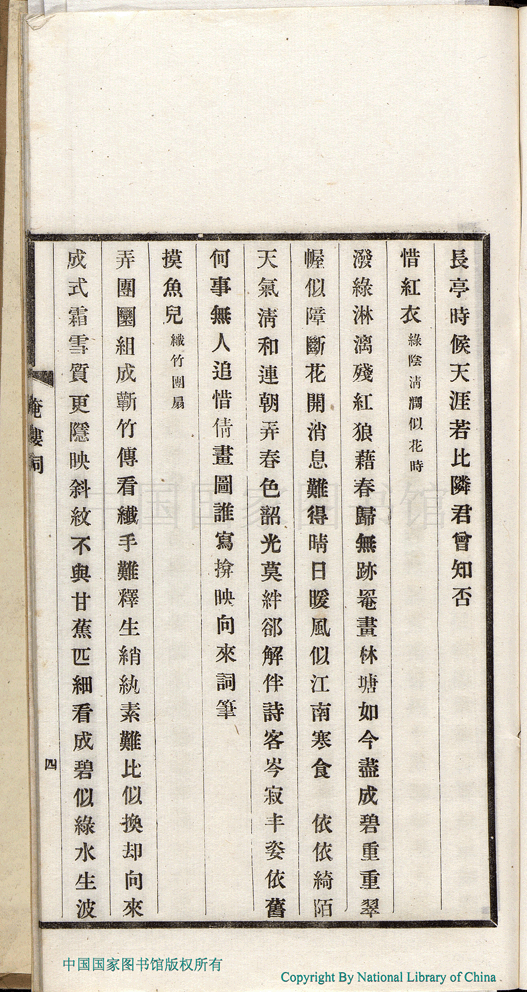 長亭時候天涯若比隣君曾知否
惜紅衣 綠陰清潤似花時
潑綠淋漓殘紅狼藉春歸無跡罨畫林塘如今盡成碧重重翠
幄似障斷花開消息難得晴日暖風似江南寒食 依依綺陌
天氣清和連朝弄春色韶光莫絆郤解伴詩客岑寂丰姿依舊
何事無人追惜倩畫圖誰寫揜映向來詞筆
摸魚兒 纖竹團扇
弄團圞組成蘄竹傳看纖手難釋生綃紈素難比似換却向來
成式霜雪質更隱映斜紋不與甘蕉匹細看成碧似綠水生波
詞
四
中国国家图书馆
中国国家图书馆版权所有
Copyright By National Library of China